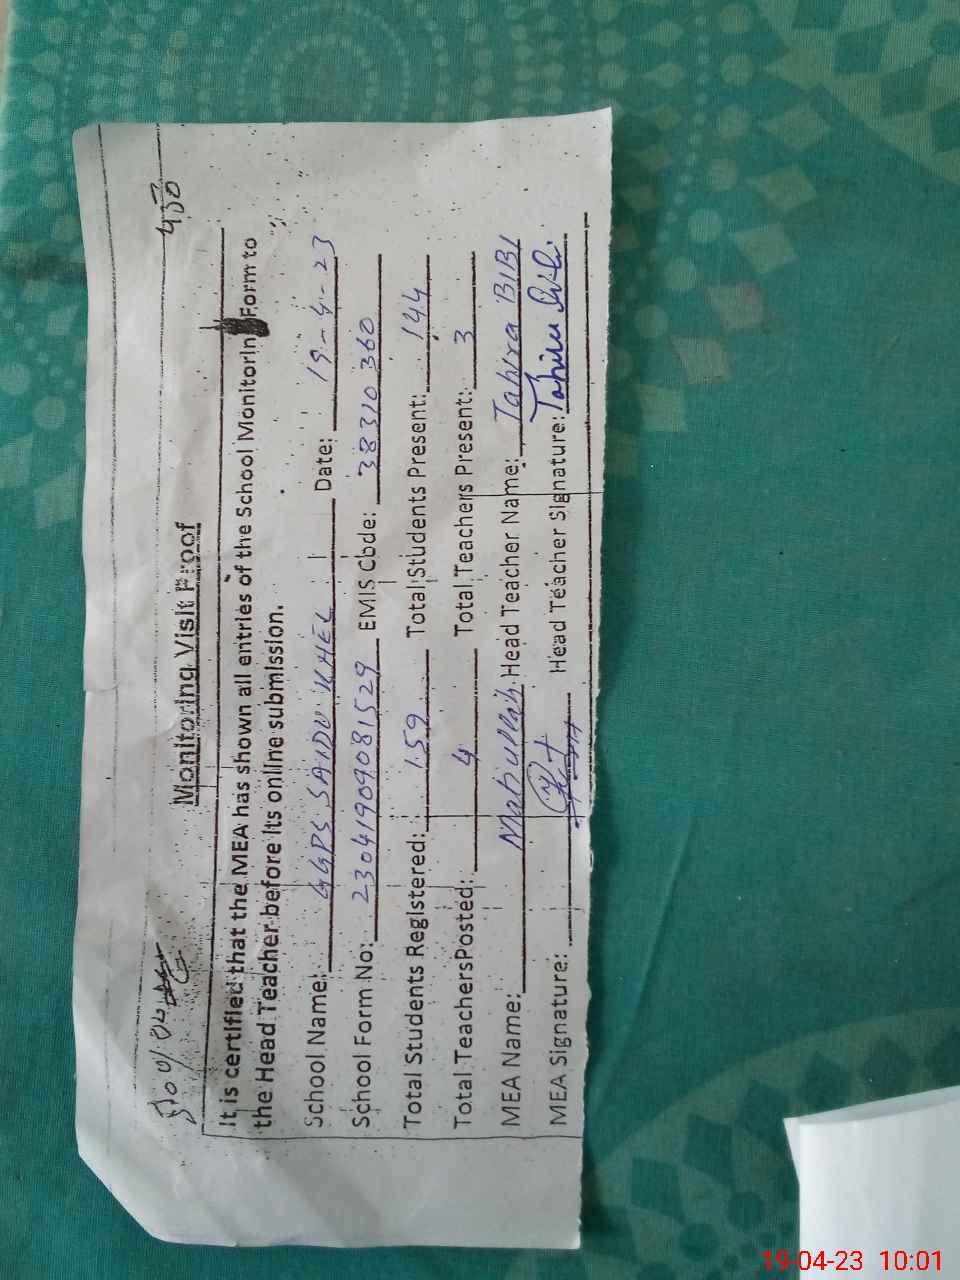 Monitoring Visit Proof
It is certified that the MEA has shown all entries of the School Monitoring Form to
the Head Teacher before its online submission.
School Name: GGPS SAIDU KHEL Date: 19-4-23
School Form No: 23041909081529 EMIS Code: 38310360
Total Students Registered: 159 Total Students Present: 144
Total TeachersPosted: 4 Total Teachers Present: 3
MEA Name: Matiullah Head Teacher Name: Tahira BIBI
MEA Signature: Head Teacher Signature: Tahira Bibi
19-04-23 10:01